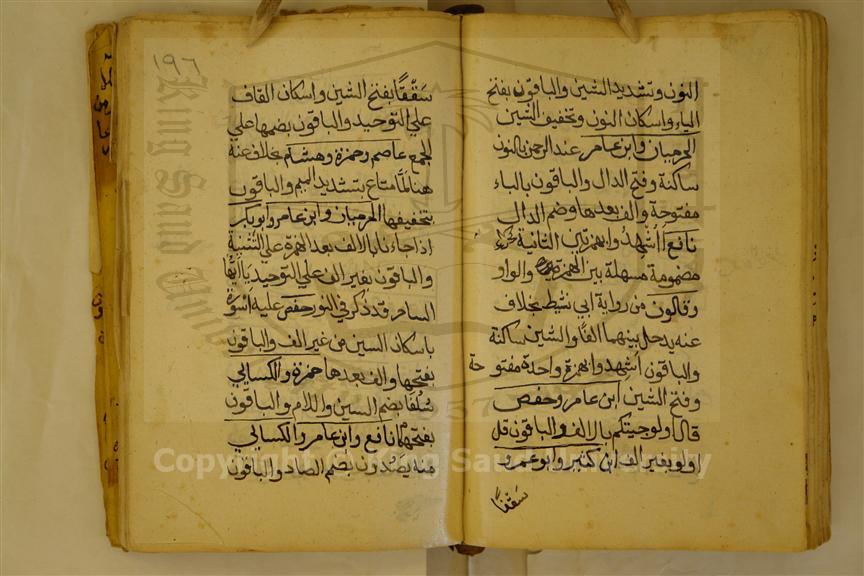 النون وتشديد الشين والباقون بفتح
الياء واسكان النون وتخفيف الشين
الحرميان وابن عامر عند الرحمن بالنون
ساكنة وفتح الدال والباقون بالباء
مفتوحة والف بعدها وضم الدال
نافع أأشهدوا بهمزتين الثانية
مضمومة مسهلة بين الهمزة والواو
وقالون من رواية ابي نشيط بخلاف
عنه يدخل بينهما الفا والشين ساكنة
والباقون أشهدوا بهمزة واحدة مفتوحة
وفتح الشين ابن عامر وحفص
قال اولوجيتكم بالالف والباقون قل
اولو بغير الف ابن كثير وابو عمرو
سقفا
١٩٦
سَقْفًا بفتح الشين واسكان القاف
علي التوحيد والباقون بضمها علي
الجمع عاصم وحمزة وهشام بخلاف عنه
هنا لمّا متاع بتشديد الميم والباقون
بتخفيفها الحرميان وابن عامر وابو بكر
اذا جاءنا بالالف بعد الهمزة علي التثنية
والباقون بغير الف علي التوحيد يا ايها
الساحر قد ذكر في النور حفص عليه اسورة
باسكان السين من غير الف والباقون
بفتحها والف بعدها حمزة والكسائي
سُلُفا بضم السين واللام والباقون
بفتحهما نافع وابن عامر والكسائي
منه يصدون بضم الصاد والباقون
Copyright © King Saud University
King Saud University
1957